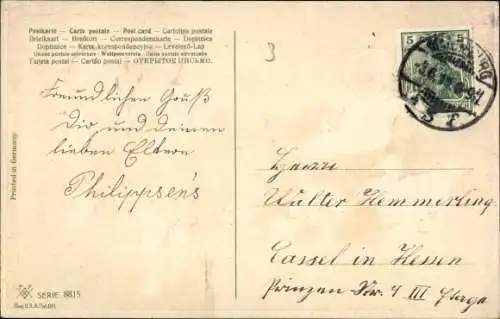 Postkarte — Carte postale — Post card — Cartolina postale
Briefkaart — Brefkort — Correspondenzkarte — Dopisnica
Dopisnice — Karta korespondencyjna — Levelező-Lap
Unione postale universale — Weltpostverein — Union postale universelle
Tarjeta postal — Cartão postal — ОТКРЫТОЕ ПИСЬМО.
3
5 5
Freundlichen Gruß
Dir und Deinen
lieben Eltern
Philippsen's
Printed in Germany
Herrn
Walter Hemmerling
Cassel in Hessen
Prinzen Str. 4 III Etage
SERIE 8815